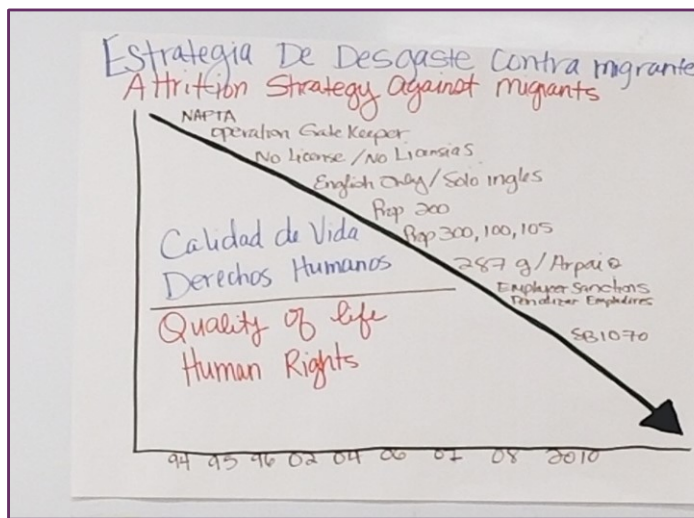 Estrategia De Desgaste Contra migrante
Attrition Strategy Against Migrants
NAPTA
operation Gate Keeper
No License / No Licensias
English Only / Solo ingles
Prop 200
Prop 300, 100, 105
287 g / Arpaio
Employer Sanctions
Penalizar Empladires
SB1070
Calidad de Vida
Derechos Humanos
Quality of life
Human Rights
94 95 96 02 04 06 07 08 2010